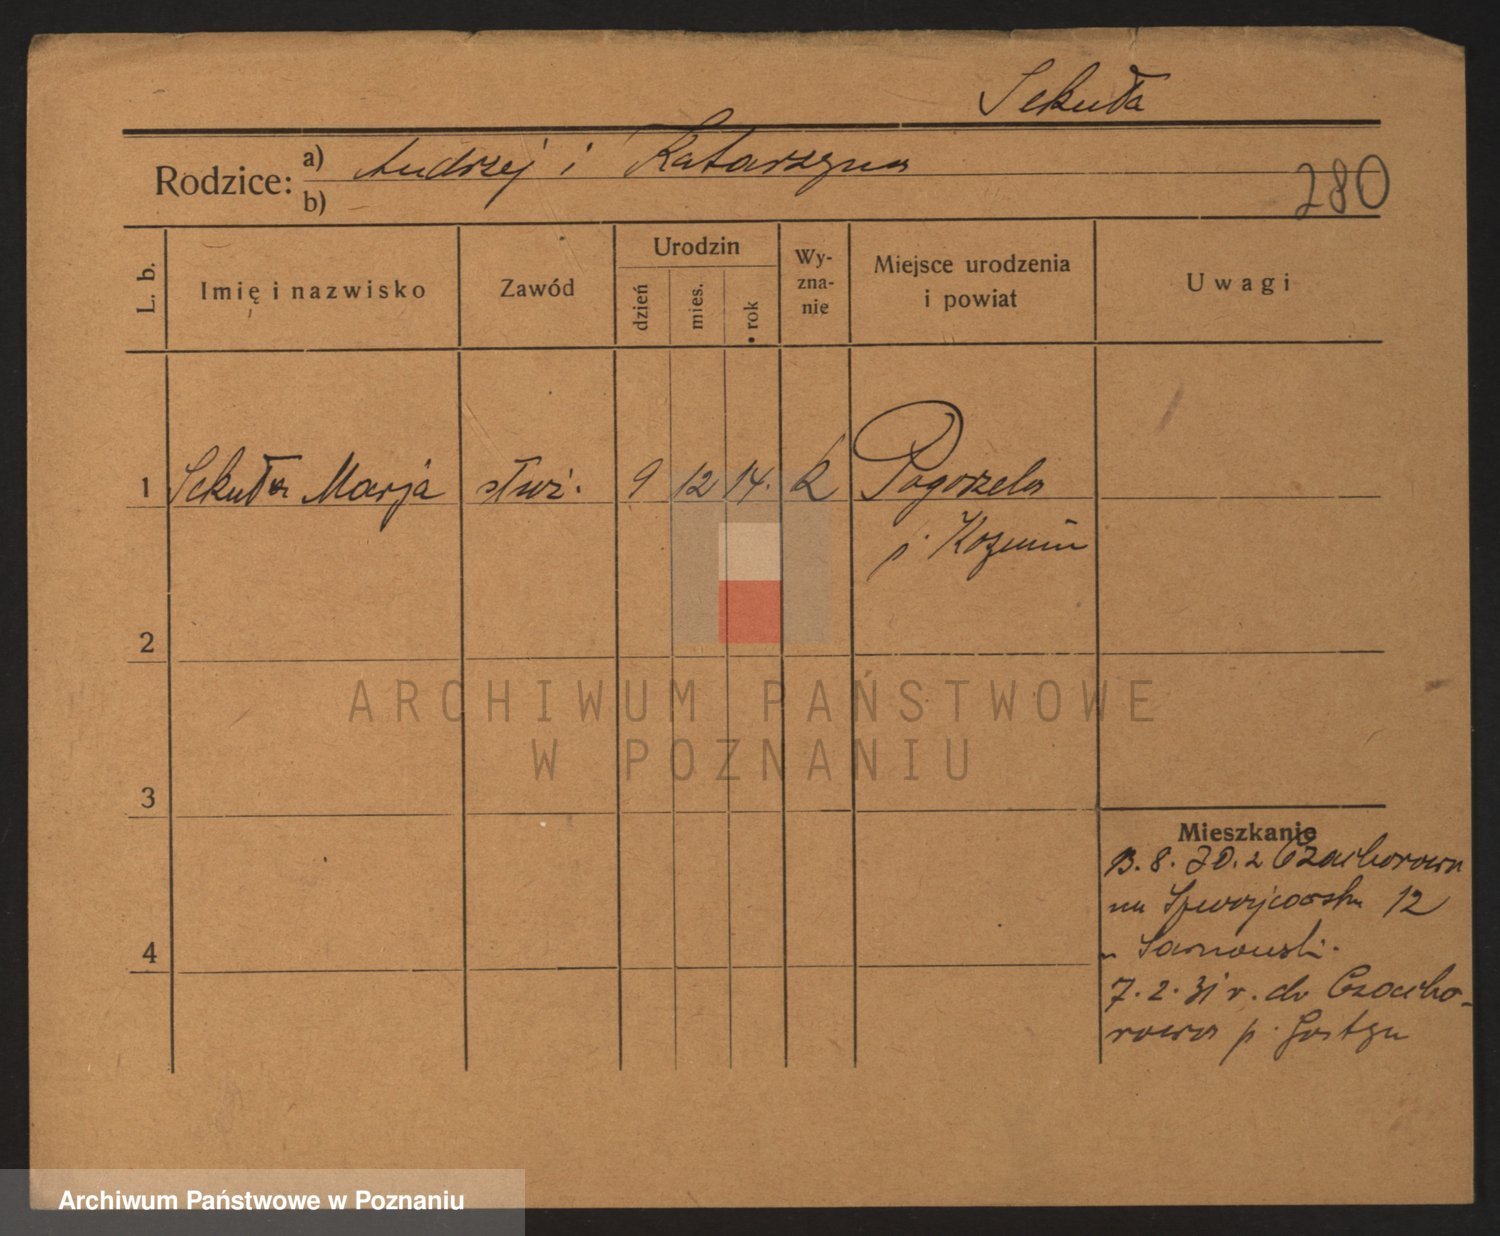 Sekuła
Rodzice: a) Andrzej i Katarzyna
b)
280
L. b. Imię i nazwisko Zawód Urodzin dzień mies. rok Wy-zna-nie Miejsce urodzenia i powiat Uwagi
1 Sekuła Marja służ. 9 12 14. k Pogorzela
p. Koźmin
2
ARCHIWUM PAŃSTWOWE
W POZNANIU
3
Mieszkanie
13. 8. 30. z Czachorowa
na 12
u Sarnowski.
7. 2. 31 r. do Czacho-
rowa p. Gostyn
4
Archiwum Państwowe w Poznaniu